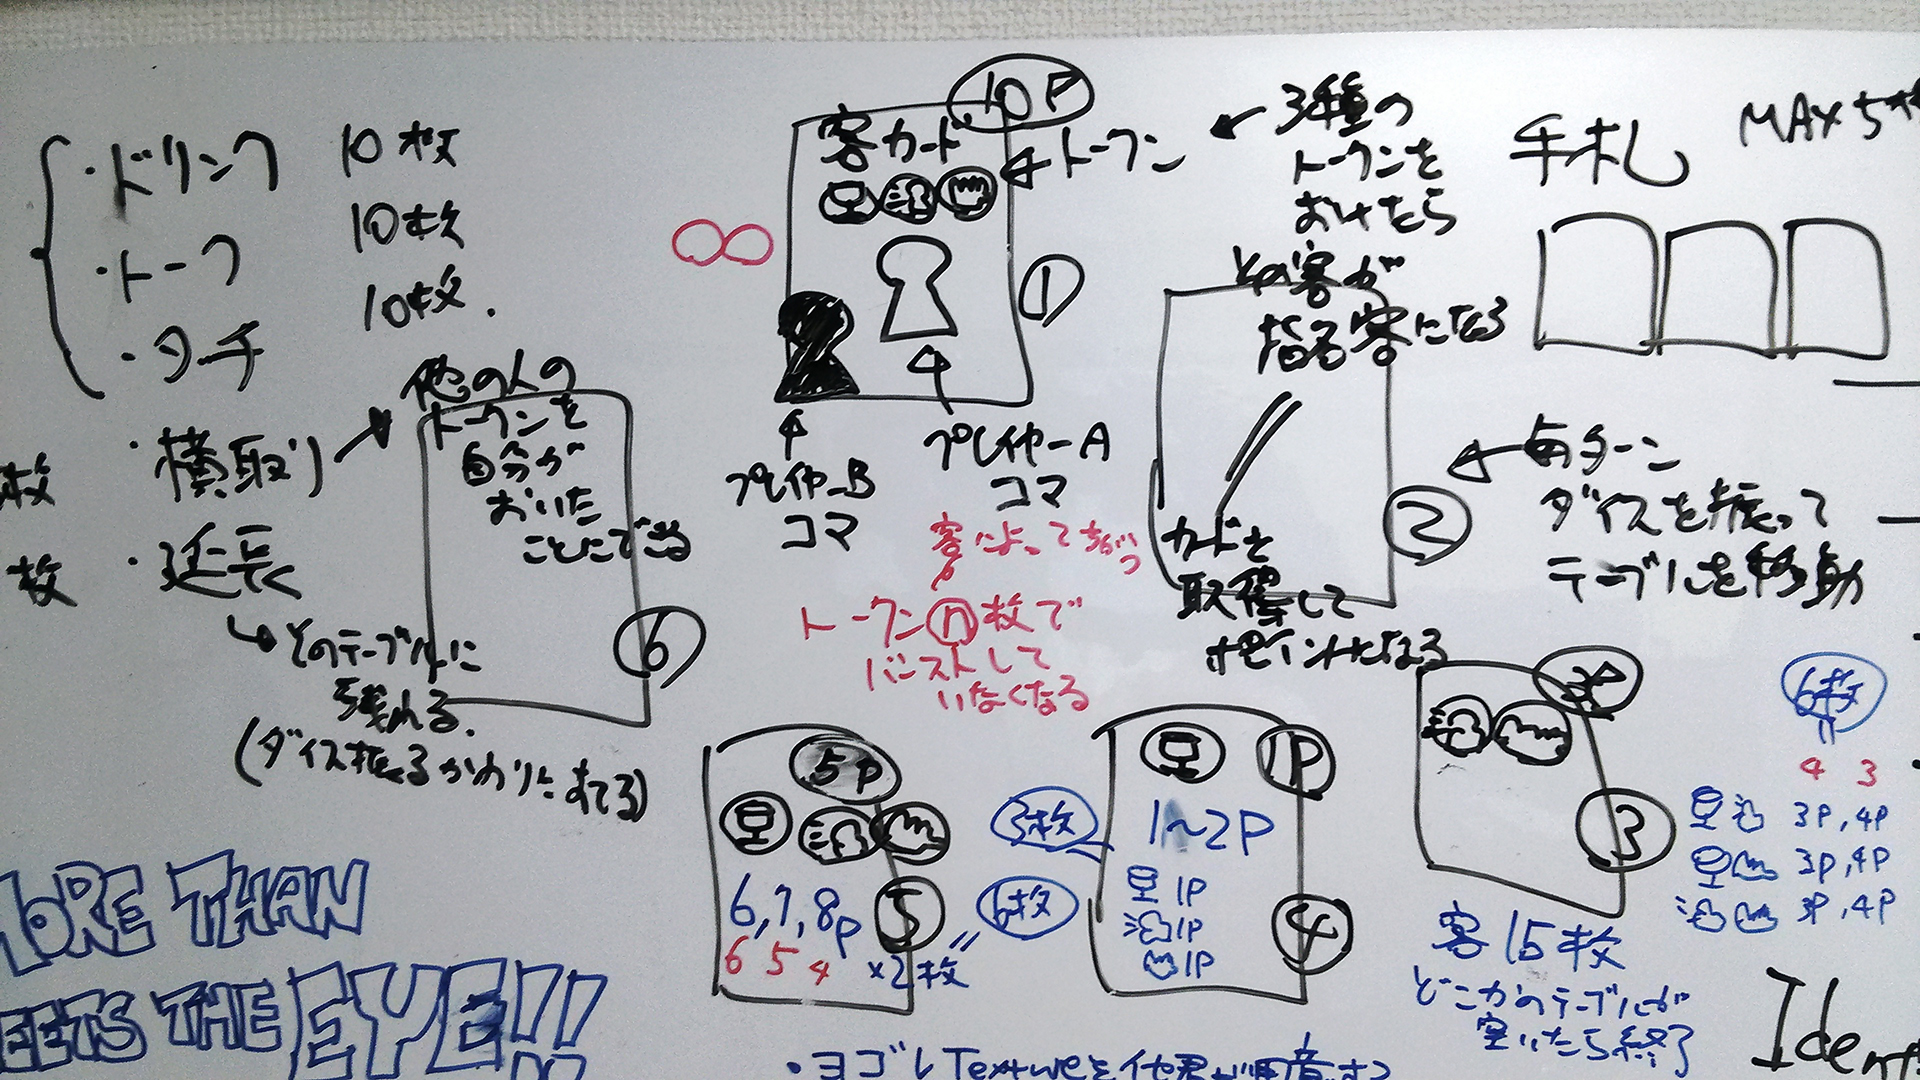 ・ドリンク 10枚
・トーク 10枚
・タッチ 10枚.
枚 ・横取り
枚 ・延長
他の人の
トークンを
自分が
おいた
ことにできる
⑥
そのテーブルに
残れる.
(ダイス振るかわりにすてる)
10P
客カード
トークン
∞
①
プレイヤーB
コマ
プレイヤーA
コマ
客によってちがう
トークンⓝ枚で
バーストして
いなくなる
3種の
トークンを
おけたら
その客が
指名客になる
カードを
取得して
ポイントになる
②
毎ターン
ダイスを振って
テーブルを移動
手札 MAX 5
5P
6,7,8P
6 5 4
×2枚
⑤
3枚
6枚
1P
1~2P
1P
1P
1P
④
③
6枚
4 3
3P,4P
3P,4P
3P,4P
客 15枚
どこかのテーブルが
空いたら終了
MORE THAN
MEETS THE EYE!!
・ヨゴレTextureを
Ident